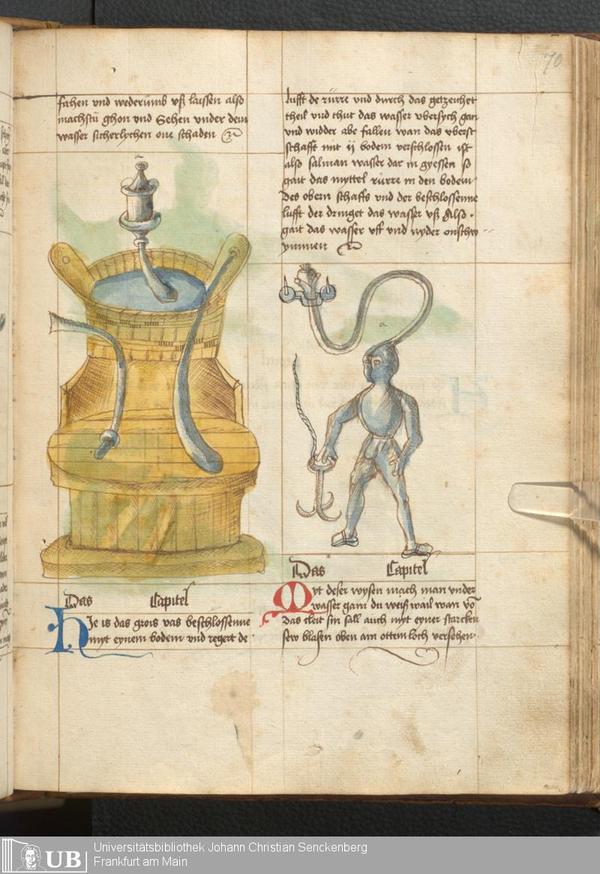 fahen vnd wederumb vß laissen also
machstu ghon vnd Sehen vnder dem
wasser sicherlychen one schaden
Das Capitel
Hie is das grois vas beschlossenne
myt eynem bodem vnd regert de
70
lufft de rurre vnd durch das getzeichet
theil vnd thut das wasser vbersych gan
vnd widder abe fallen wan das vberst
schafft mit ij bodem verschlossen ist
also salman wasser dar in gyessen so
gait das myttel rurre in den bodem
des obern schaffs vnd der beschlossenne
lufft der dringet das wasser vß Also
gait das wasser vff vnd nyder
a
Das Capitel
Myt deser wysen mach man vnder
wasser gann du weist wail wan
das cleit sin sall auch myt eyner starcken
blasen oben am ottem loch versehen
UB
Universitätsbibliothek Johann Christian Senckenberg
Frankfurt am Main